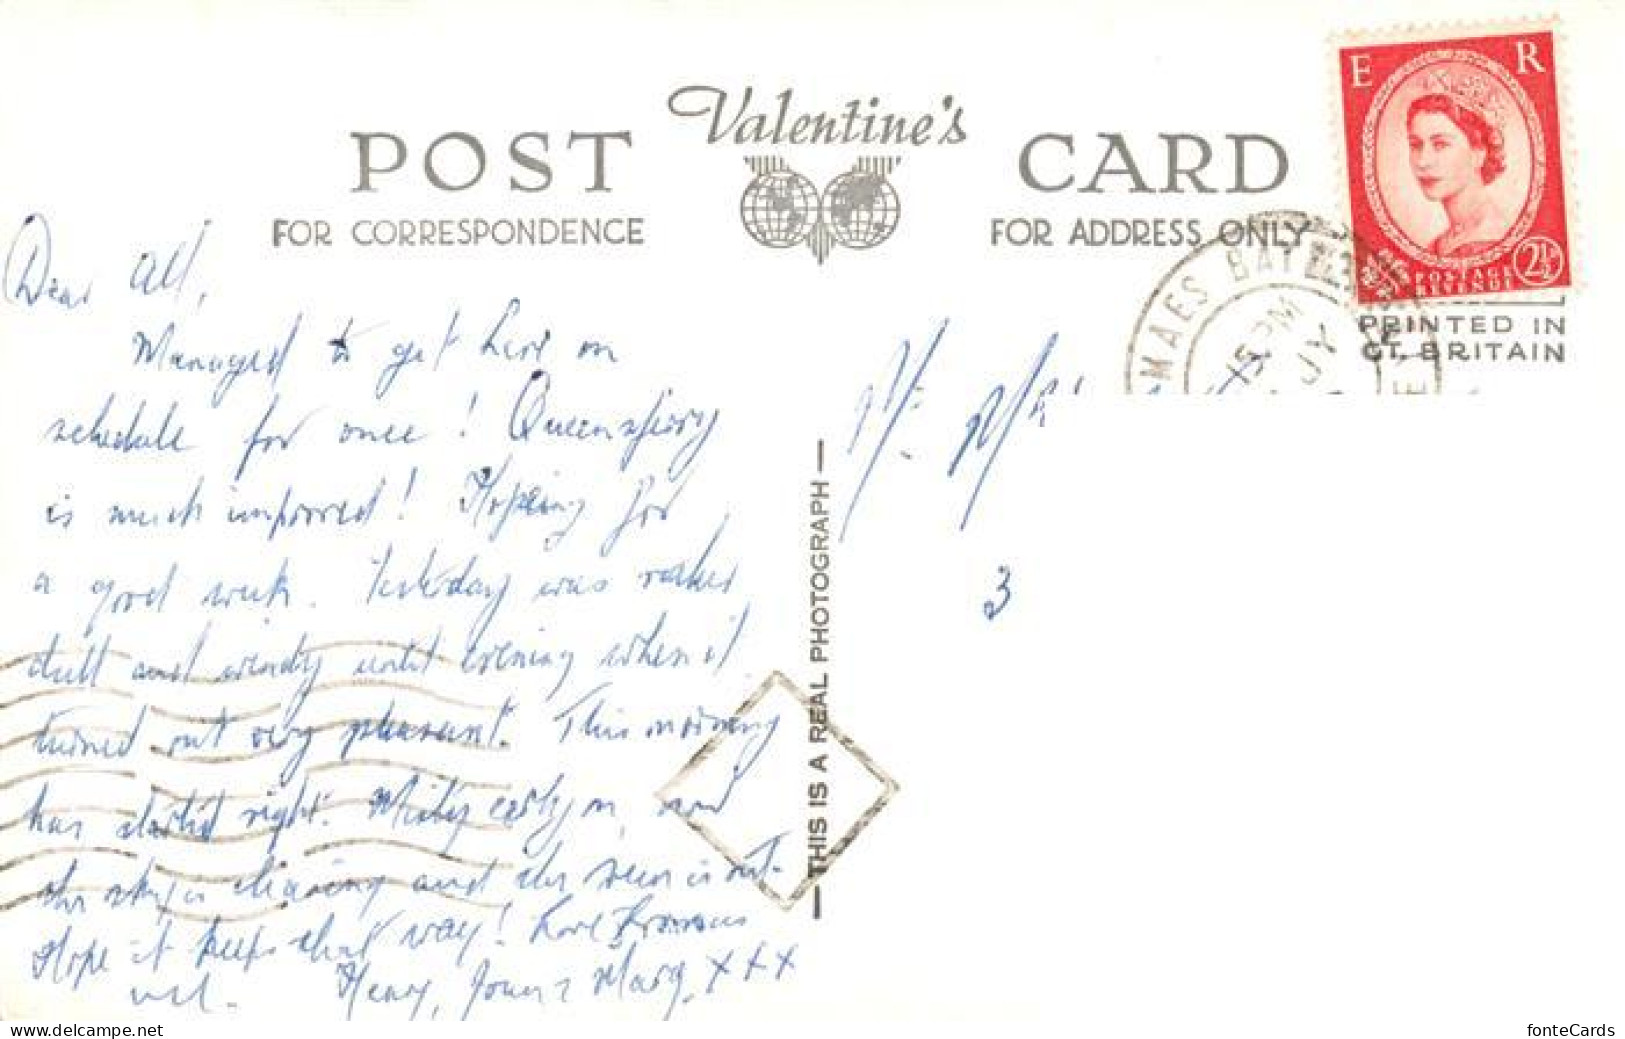 Valentine's
POST CARD
FOR CORRESPONDENCE
FOR ADDRESS ONLY
E R
POSTAGE REVENUE 2½
PRINTED IN
GT. BRITAIN
MAES BAY
15 PM
JY
Dear All,
Managed to get here on
schedule for once! Queensferry
is much improved! Hoping for
a good week. Yesterday was rather
dull and windy until evening when it
turned out very pleasant. This morning
has started right. Misty early on, and
the sky is clearing and the sun is out.
Hope it keeps that way! Love from us
Henry, & Marg. XXX
3
THIS IS A REAL PHOTOGRAPH
fonteCards
www.delcampe.net